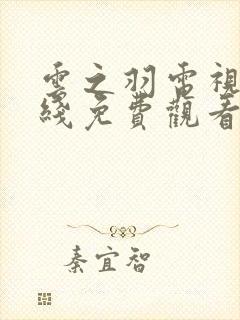 雲之羽電視
綫免費觀看
秦宜智